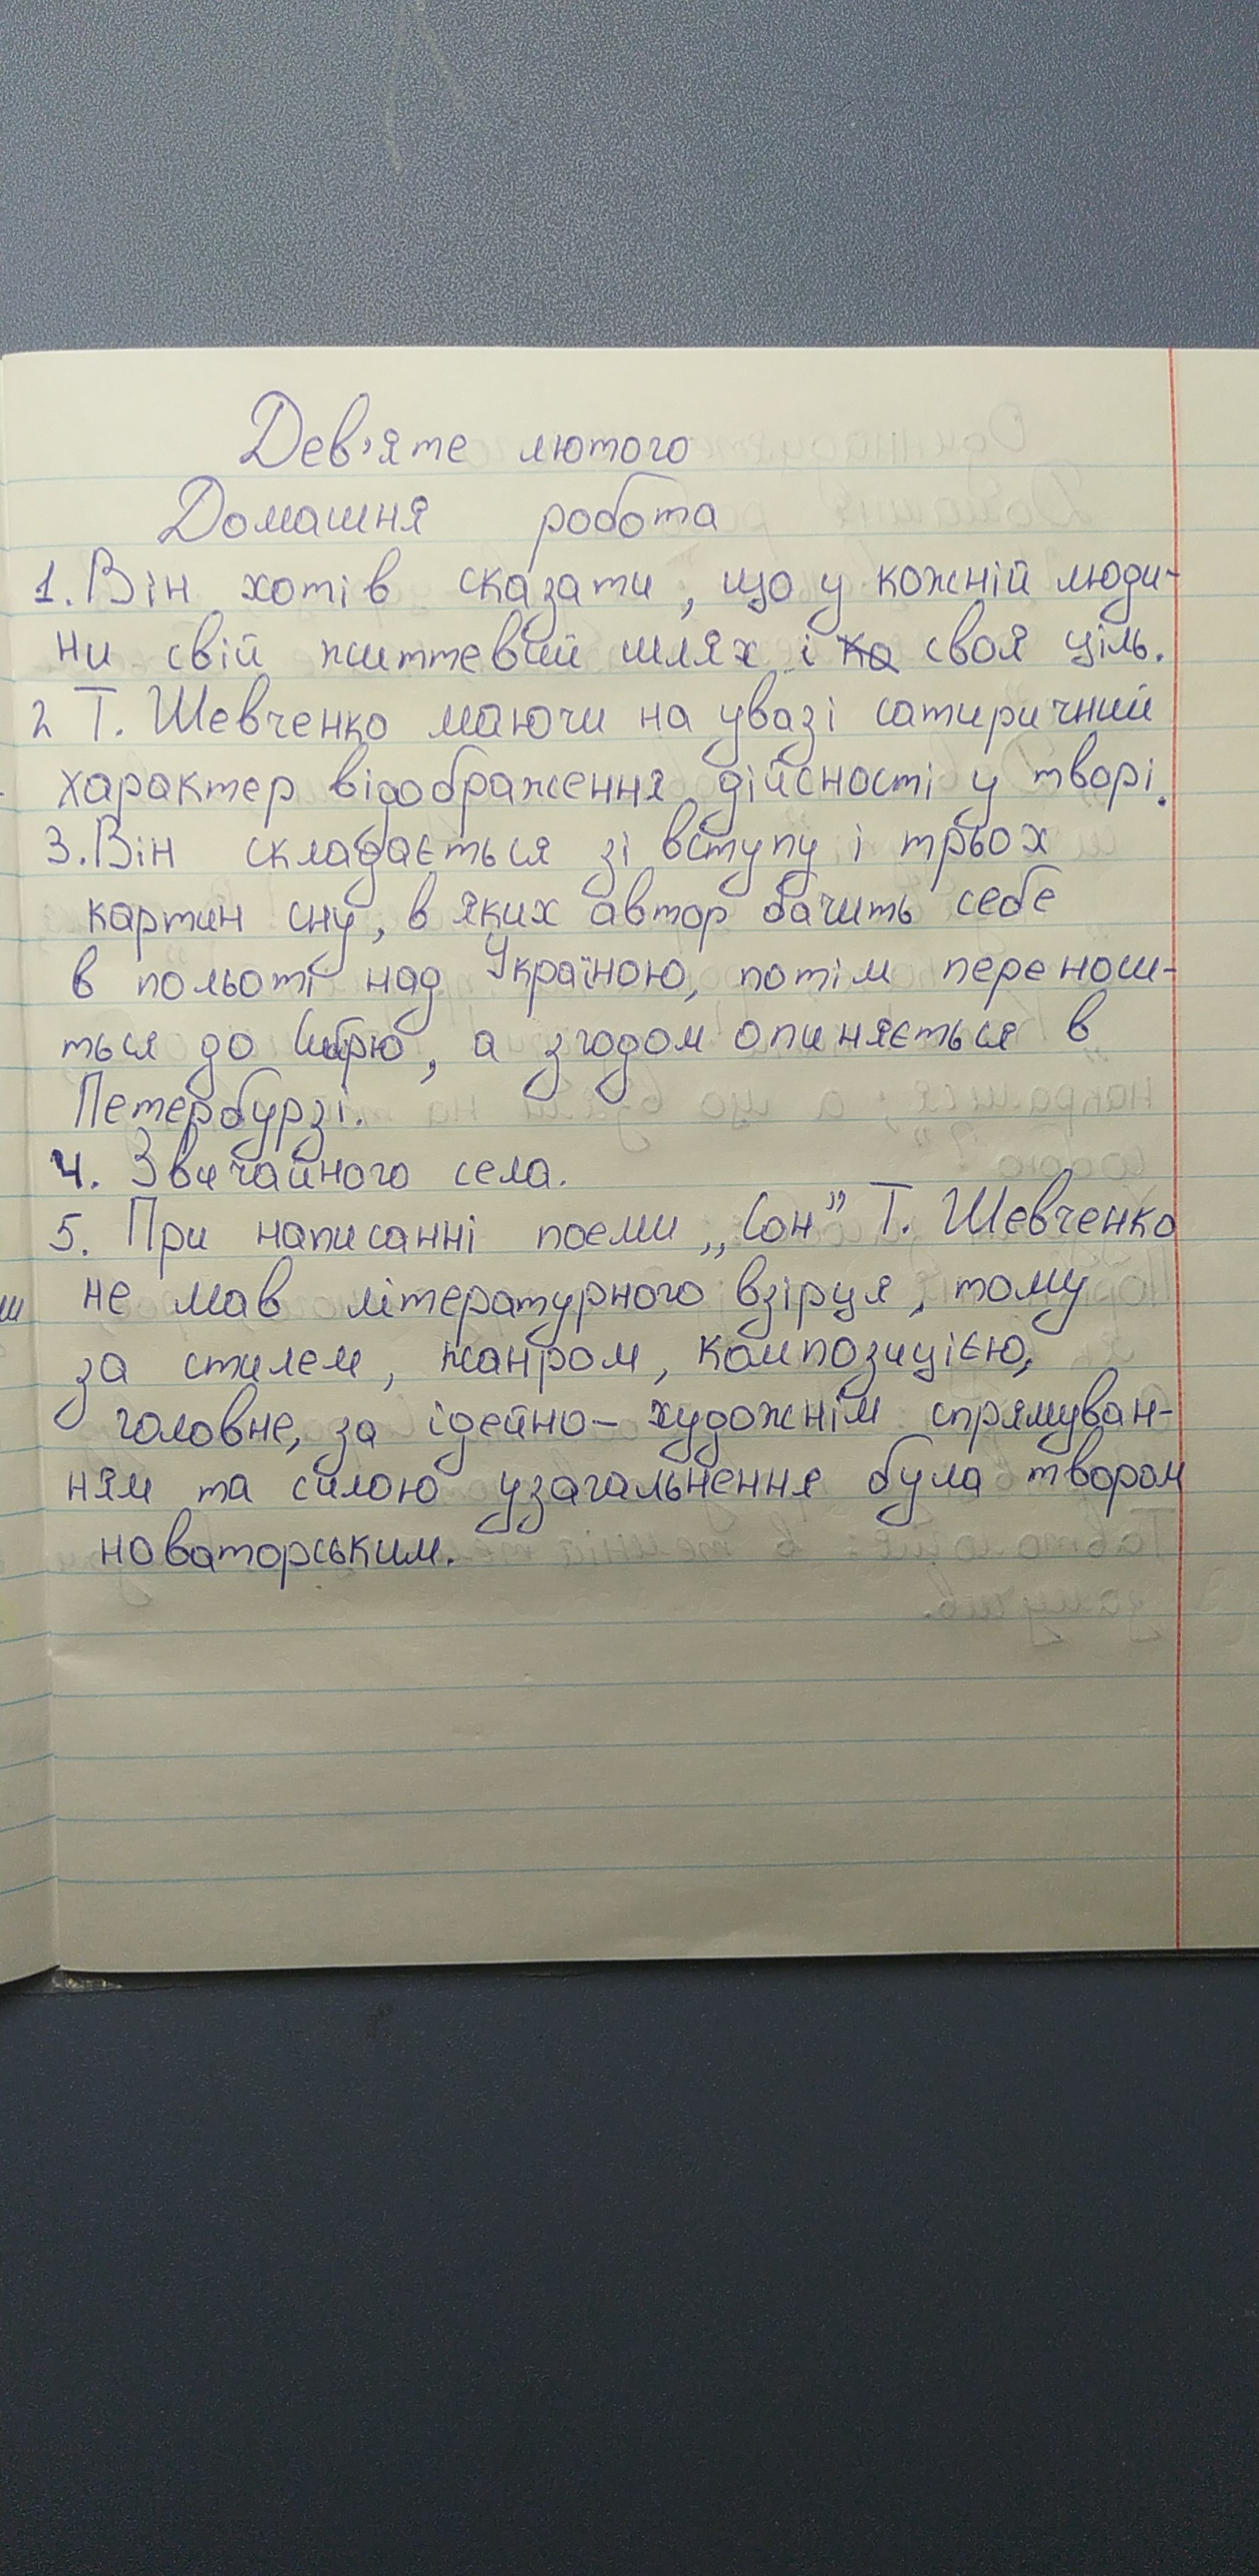 Дев'яте лютого
Домашня робота
1. Він хотів сказати, що у кожній люди-
ни свій життєвий шлях і своя ціль.
2 Т. Шевченко маючи на увазі сатиричний
характер відображення дійсності у творі.
3. Він складається зі вступу і трьох
картин сну, в яких автор бачить себе
в польоті над Україною, потім переноси-
ться до Сибірю, а згодом опиняється в
Петербурзі.
4. Звичайного села.
5. При написанні поеми „Сон” Т. Шевченко
не мав літературного взірця, тому
за стилем, жанром, композицією,
головне, за ідейно-художнім спрямуван-
ням та силою узагальнення була твором
новаторським.